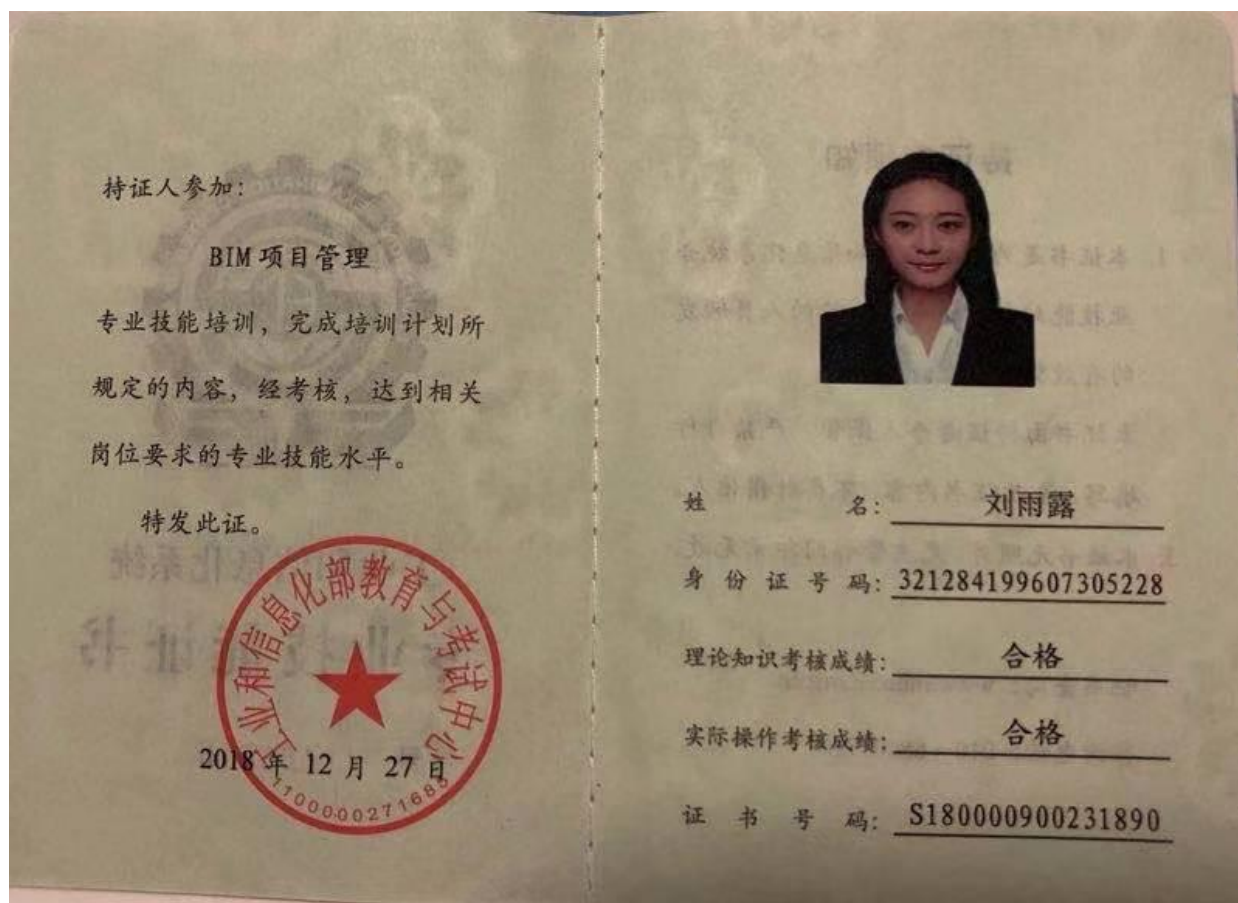 持证人参加:
BIM 项目管理
专业技能培训, 完成培训计划所
规定的内容, 经考核, 达到相关
岗位要求的专业技能水平。
特发此证。
工业和信息化部教育与考试中心
2018 年 12 月 27 日
姓名: 刘雨露
身份证号码: 321284199607305228
理论知识考核成绩: 合格
实际操作考核成绩: 合格
证书号码: S180000900231890